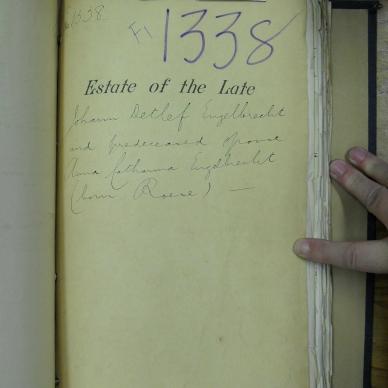 1338
F1 1338
Estate of the Late
Johann Detlef Engelbrecht
and predeceased spouse
Anna Catharina Engelbrecht
(born Roese) —